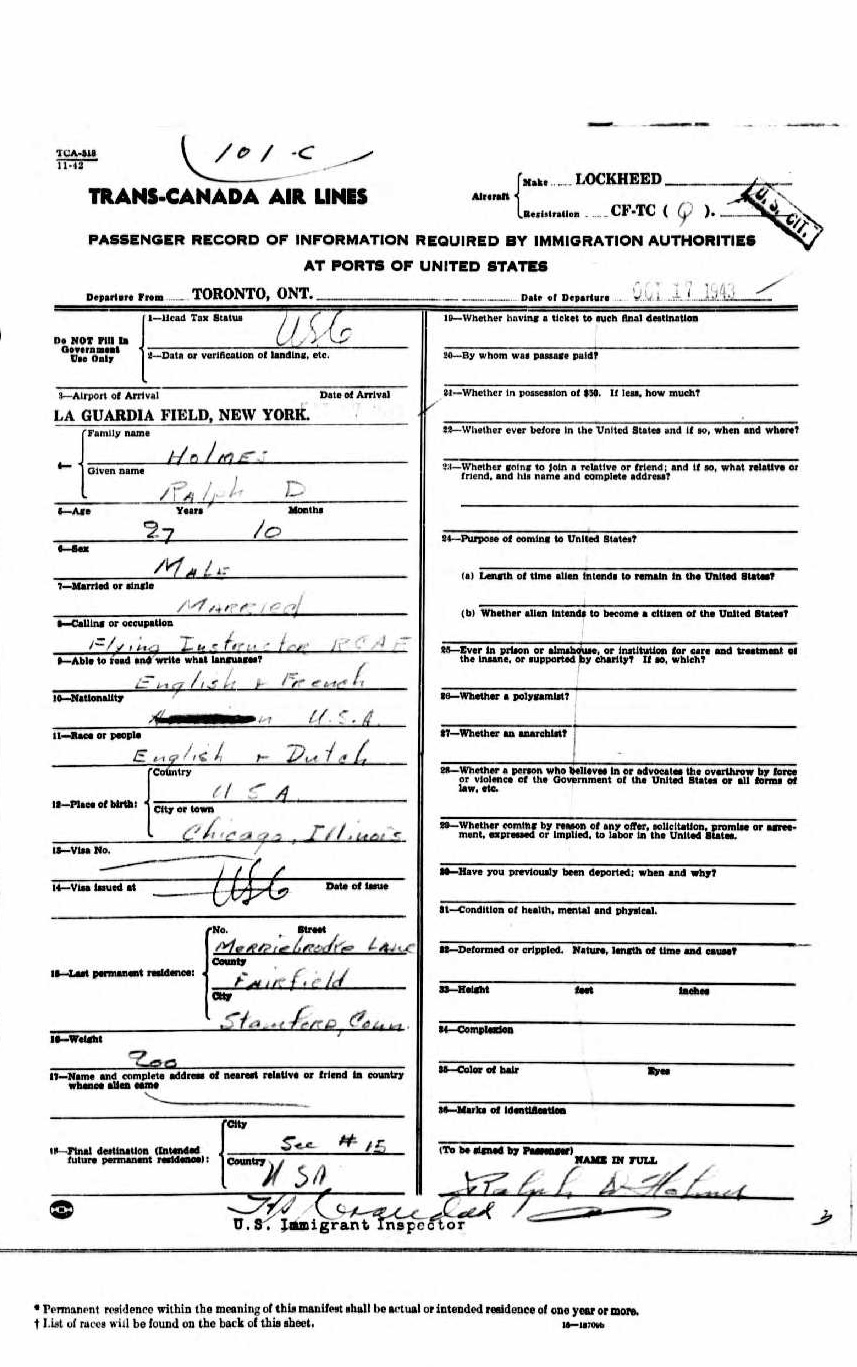 TCA-518
11-42
101-C
TRANS-CANADA AIR LINES
Aircraft
Make LOCKHEED
Registration CF-TC ( Q ).
U.S. CIT.
PASSENGER RECORD OF INFORMATION REQUIRED BY IMMIGRATION AUTHORITIES
AT PORTS OF UNITED STATES
Departure From TORONTO, ONT. Date of Departure OCT 17 1943
Do NOT Fill In
Government
Use Only
1—Head Tax Status
USC
2—Data or verification of landing, etc.
3—Airport of Arrival Date of Arrival
LA GUARDIA FIELD, NEW YORK.
4—
Family name
HOLMES
Given name
Ralph D
5—Age Years Months
27 10
6—Sex
MALE
7—Married or single
MARRIED
8—Calling or occupation
Flying Instructor RCAF
9—Able to read and write what languages?
English + French
10—Nationality
U.S.A.
11—Race or people
English + Dutch
12—Place of birth:
Country
USA
City or town
Chicago, Illinois
13—Visa No.
14—Visa issued at Date of issue
USC
15—Last permanent residence:
No. Street
Merriebrooke Lane
County
Fairfield
City
Stamford, Conn.
16—Weight
200
17—Name and complete address of nearest relative or friend in country
whence alien came
18—Final destination (Intended
future permanent residence):
City
See # 15
Country
USA
U.S. Immigrant Inspector
19—Whether having a ticket to such final destination
20—By whom was passage paid?
21—Whether in possession of $50. If less, how much?
22—Whether ever before in the United States and if so, when and where?
23—Whether going to join a relative or friend; and if so, what relative or
friend, and his name and complete address?
24—Purpose of coming to United States?
(a) Length of time alien intends to remain in the United States?
(b) Whether alien intends to become a citizen of the United States?
25—Ever in prison or almshouse, or institution for care and treatment of
the insane, or supported by charity? If so, which?
26—Whether a polygamist?
27—Whether an anarchist?
28—Whether a person who believes in or advocates the overthrow by force
or violence of the Government of the United States or all forms of
law, etc.
29—Whether coming by reason of any offer, solicitation, promise or agree-
ment, expressed or implied, to labor in the United States.
30—Have you previously been deported; when and why?
31—Condition of health, mental and physical.
32—Deformed or crippled. Nature, length of time and cause?
33—Height feet inches
34—Complexion
35—Color of hair Eyes
36—Marks of identification
(To be signed by Passenger)
NAME IN FULL
Ralph D Holmes
3
* Permanent residence within the meaning of this manifest shall be actual or intended residence of one year or more.
† List of races will be found on the back of this sheet.